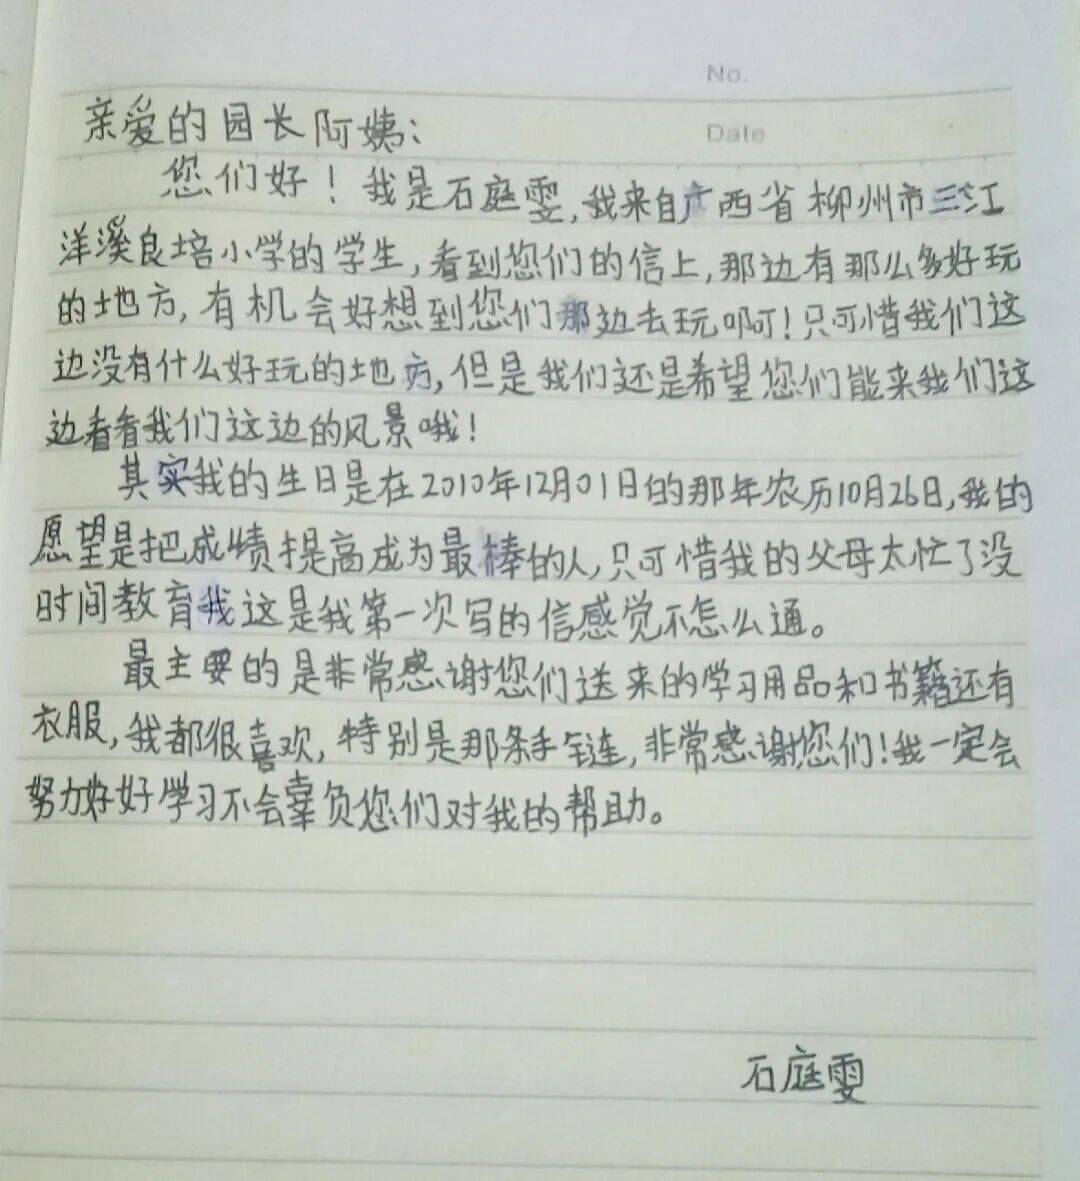 No.
亲爱的园长阿姨:
Date
您们好！我是石庭雯,我来自广西省柳州市三江
洋溪良培小学的学生,看到您们的信上,那边有那么多好玩
的地方,有机会好想到您们那边去玩啊!只可惜我们这
边没有什么好玩的地方,但是我们还是希望您们能来我们这
边看看我们这边的风景哦!
其实我的生日是在2010年12月01日的那年农历10月26日,我的
愿望是把成绩提高成为最棒的人,只可惜我的父母太忙了没
时间教育我这是我第一次写的信感觉不怎么通。
最主要的是非常感谢您们送来的学习用品和书籍还有
衣服,我都很喜欢,特别是那条手链,非常感谢您们!我一定会
努力好好学习不会辜负您们对我的帮助。
石庭雯